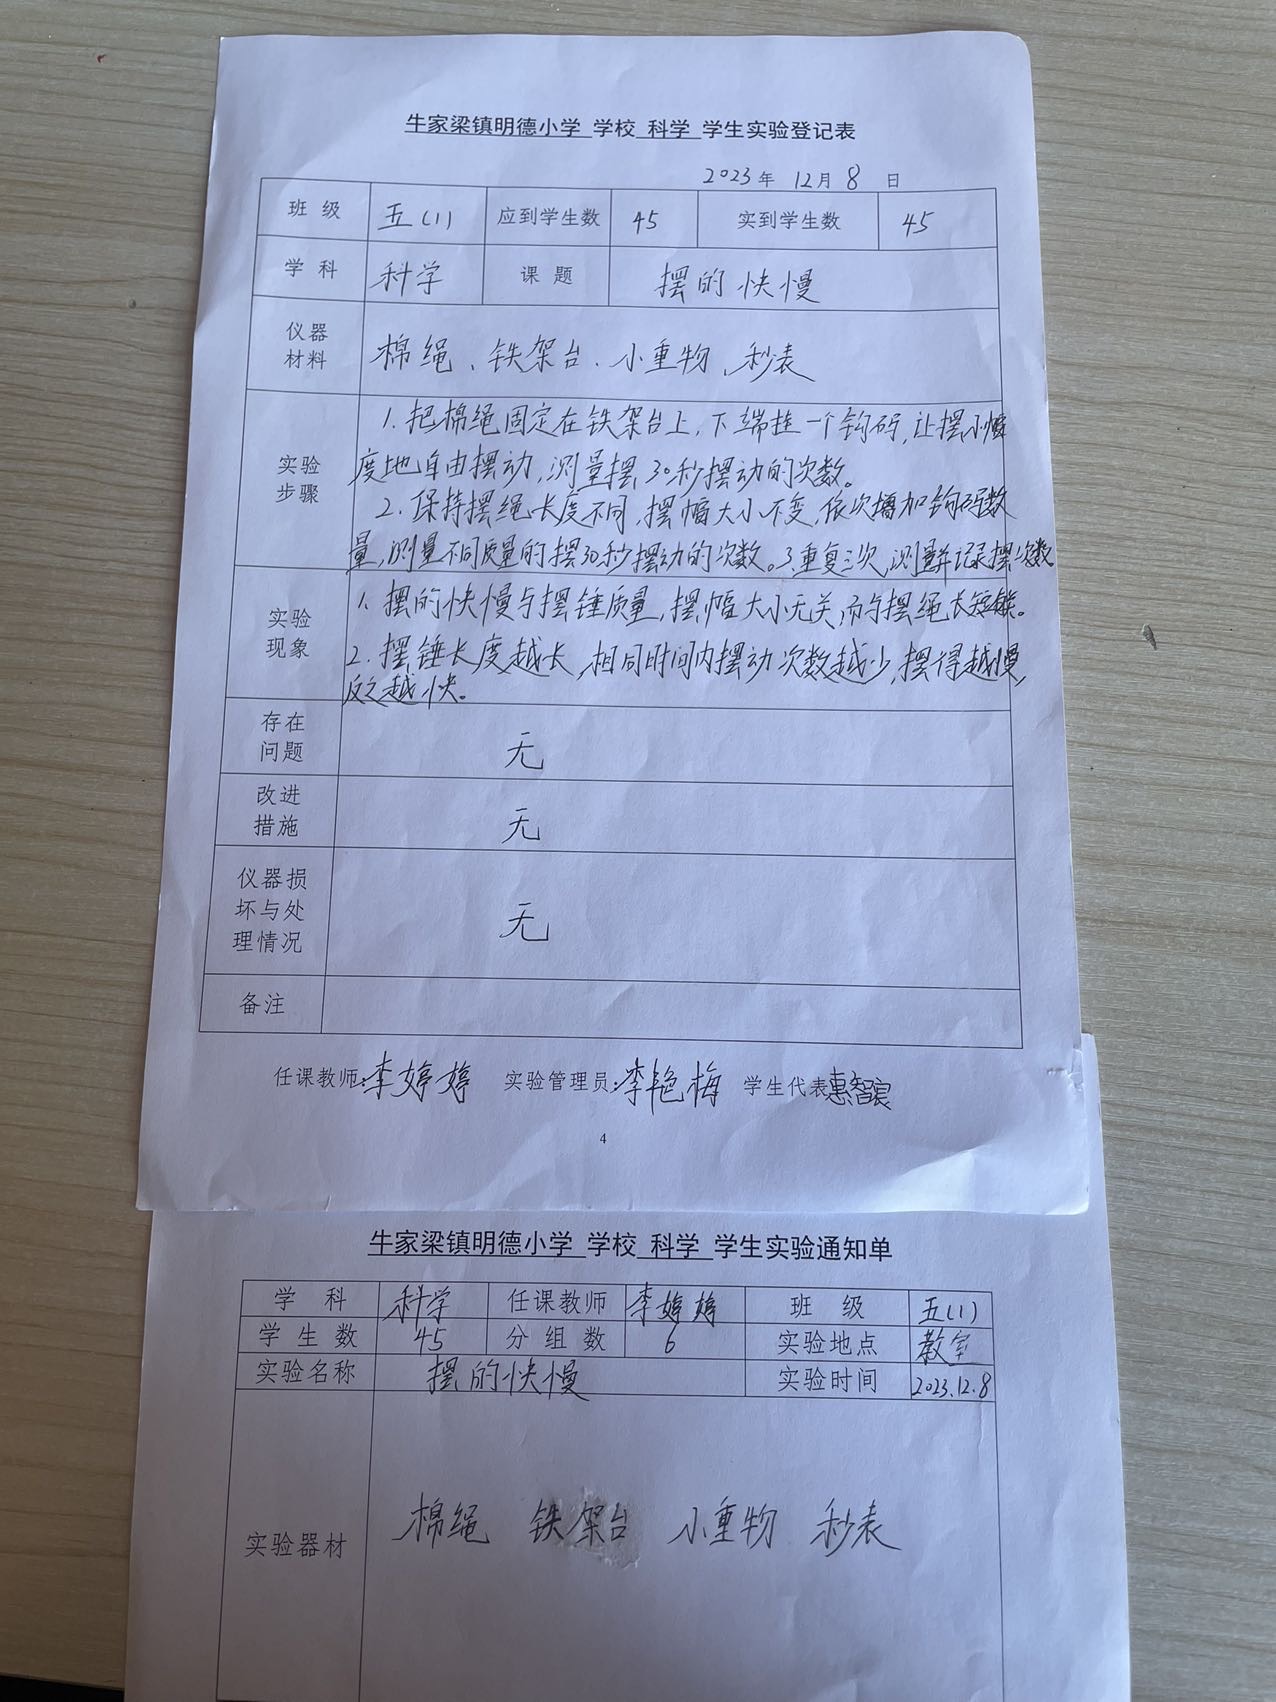 牛家梁镇明德小学 学校 科学 学生实验登记表
2023年 12月 8 日
班 级 五(1) 应到学生数 45 实到学生数 45
学 科 科学 课 题 摆的快慢
仪器
材料 棉绳、铁架台、小重物、秒表
实验
步骤
1.把棉绳固定在铁架台上,下端挂一个钩码,让摆小幅
度地自由摆动,测量摆30秒摆动的次数。
2.保持摆绳长度不同,摆幅大小不变,依次增加钩码数
量,测量不同质量的摆30秒摆动的次数。3.重复三次,测量并记录摆次数
实验
现象
1.摆的快慢与摆锤质量,摆幅大小无关,而与摆绳长短有关。
2.摆锤长度越长,相同时间内摆动次数越少,摆得越慢,
反之越快。
存在
问题 无
改进
措施 无
仪器损
坏与处
理情况 无
备注
任课教师:李婷婷 实验管理员:李艳梅 学生代表惠智宸
4
牛家梁镇明德小学 学校 科学 学生实验通知单
学 科 科学 任课教师 李婷婷 班 级 五(1)
学 生 数 45 分 组 数 6 实验地点 教室
实验名称 摆的快慢 实验时间 2023.12.8
实验器材 棉绳 铁架台 小重物 秒表